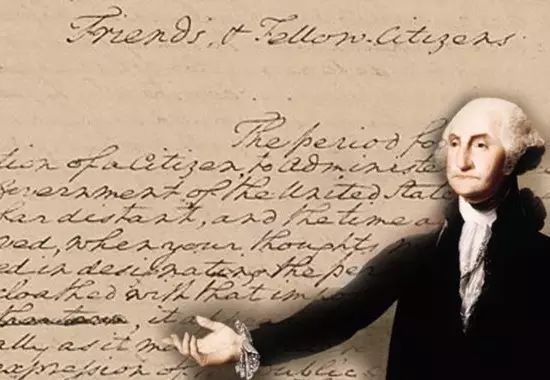 Friends, & Fellow-Citizens
The period fo
tion of a Citizen, to Administe
overnment of the United Stat
far distant, and the time a
ved, when your thoughts
ed in designating the per
cloathed with that impo
it
ally as it m
expression of public